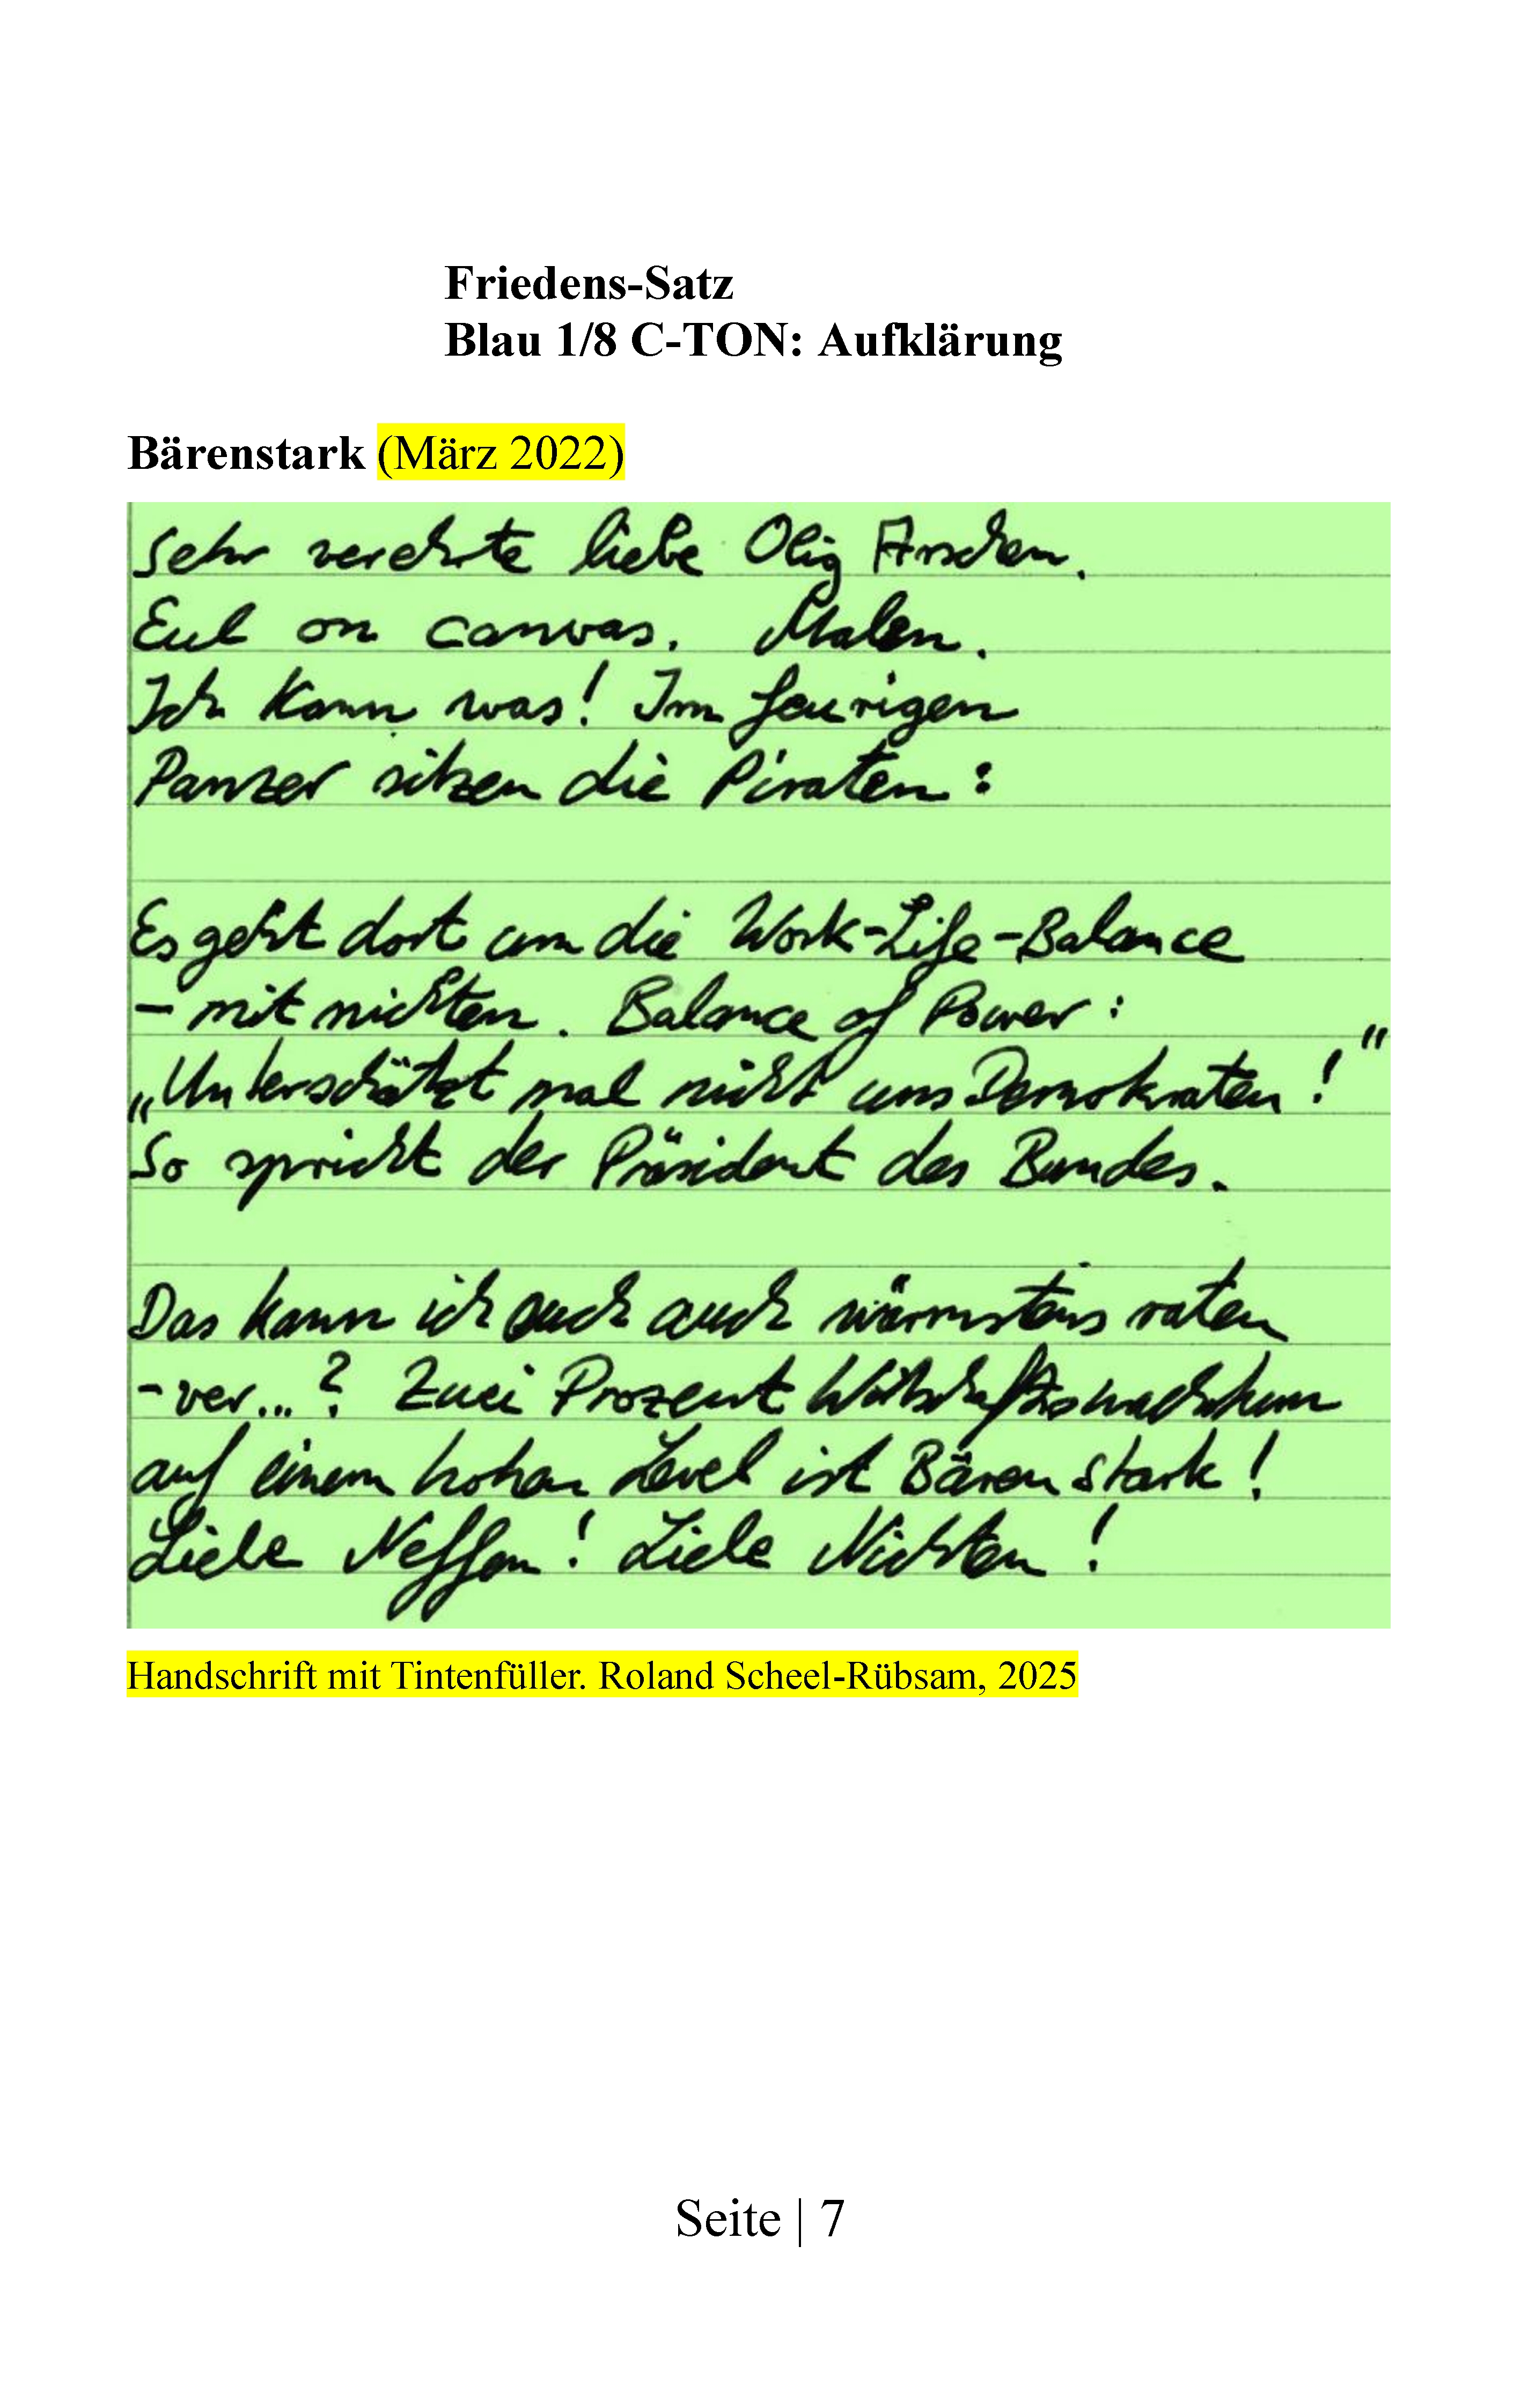 Friedens-Satz
Blau 1/8 C-TON: Aufklärung
Bärenstark (März 2022)
Sehr verehrte liebe Olig Arschen.
Eul on canvas. Malen.
Ich kann was! Im feurigen
Panzer sitzen die Piraten:
Es geht dort um die Work-Life-Balance
- mit nichten. Balance of Power:
„Unterschätzt mal nicht uns Demokraten!"
So spricht der Präsident des Bundes.
Das kann ich auch auch wärmstens raten
-ver...? Zwei Prozent
auf einem hohen Level ist Bärenstark!
Liebe Neffen! Liebe Nichten!
Handschrift mit Tintenfüller. Roland Scheel-Rübsam, 2025
Seite | 7